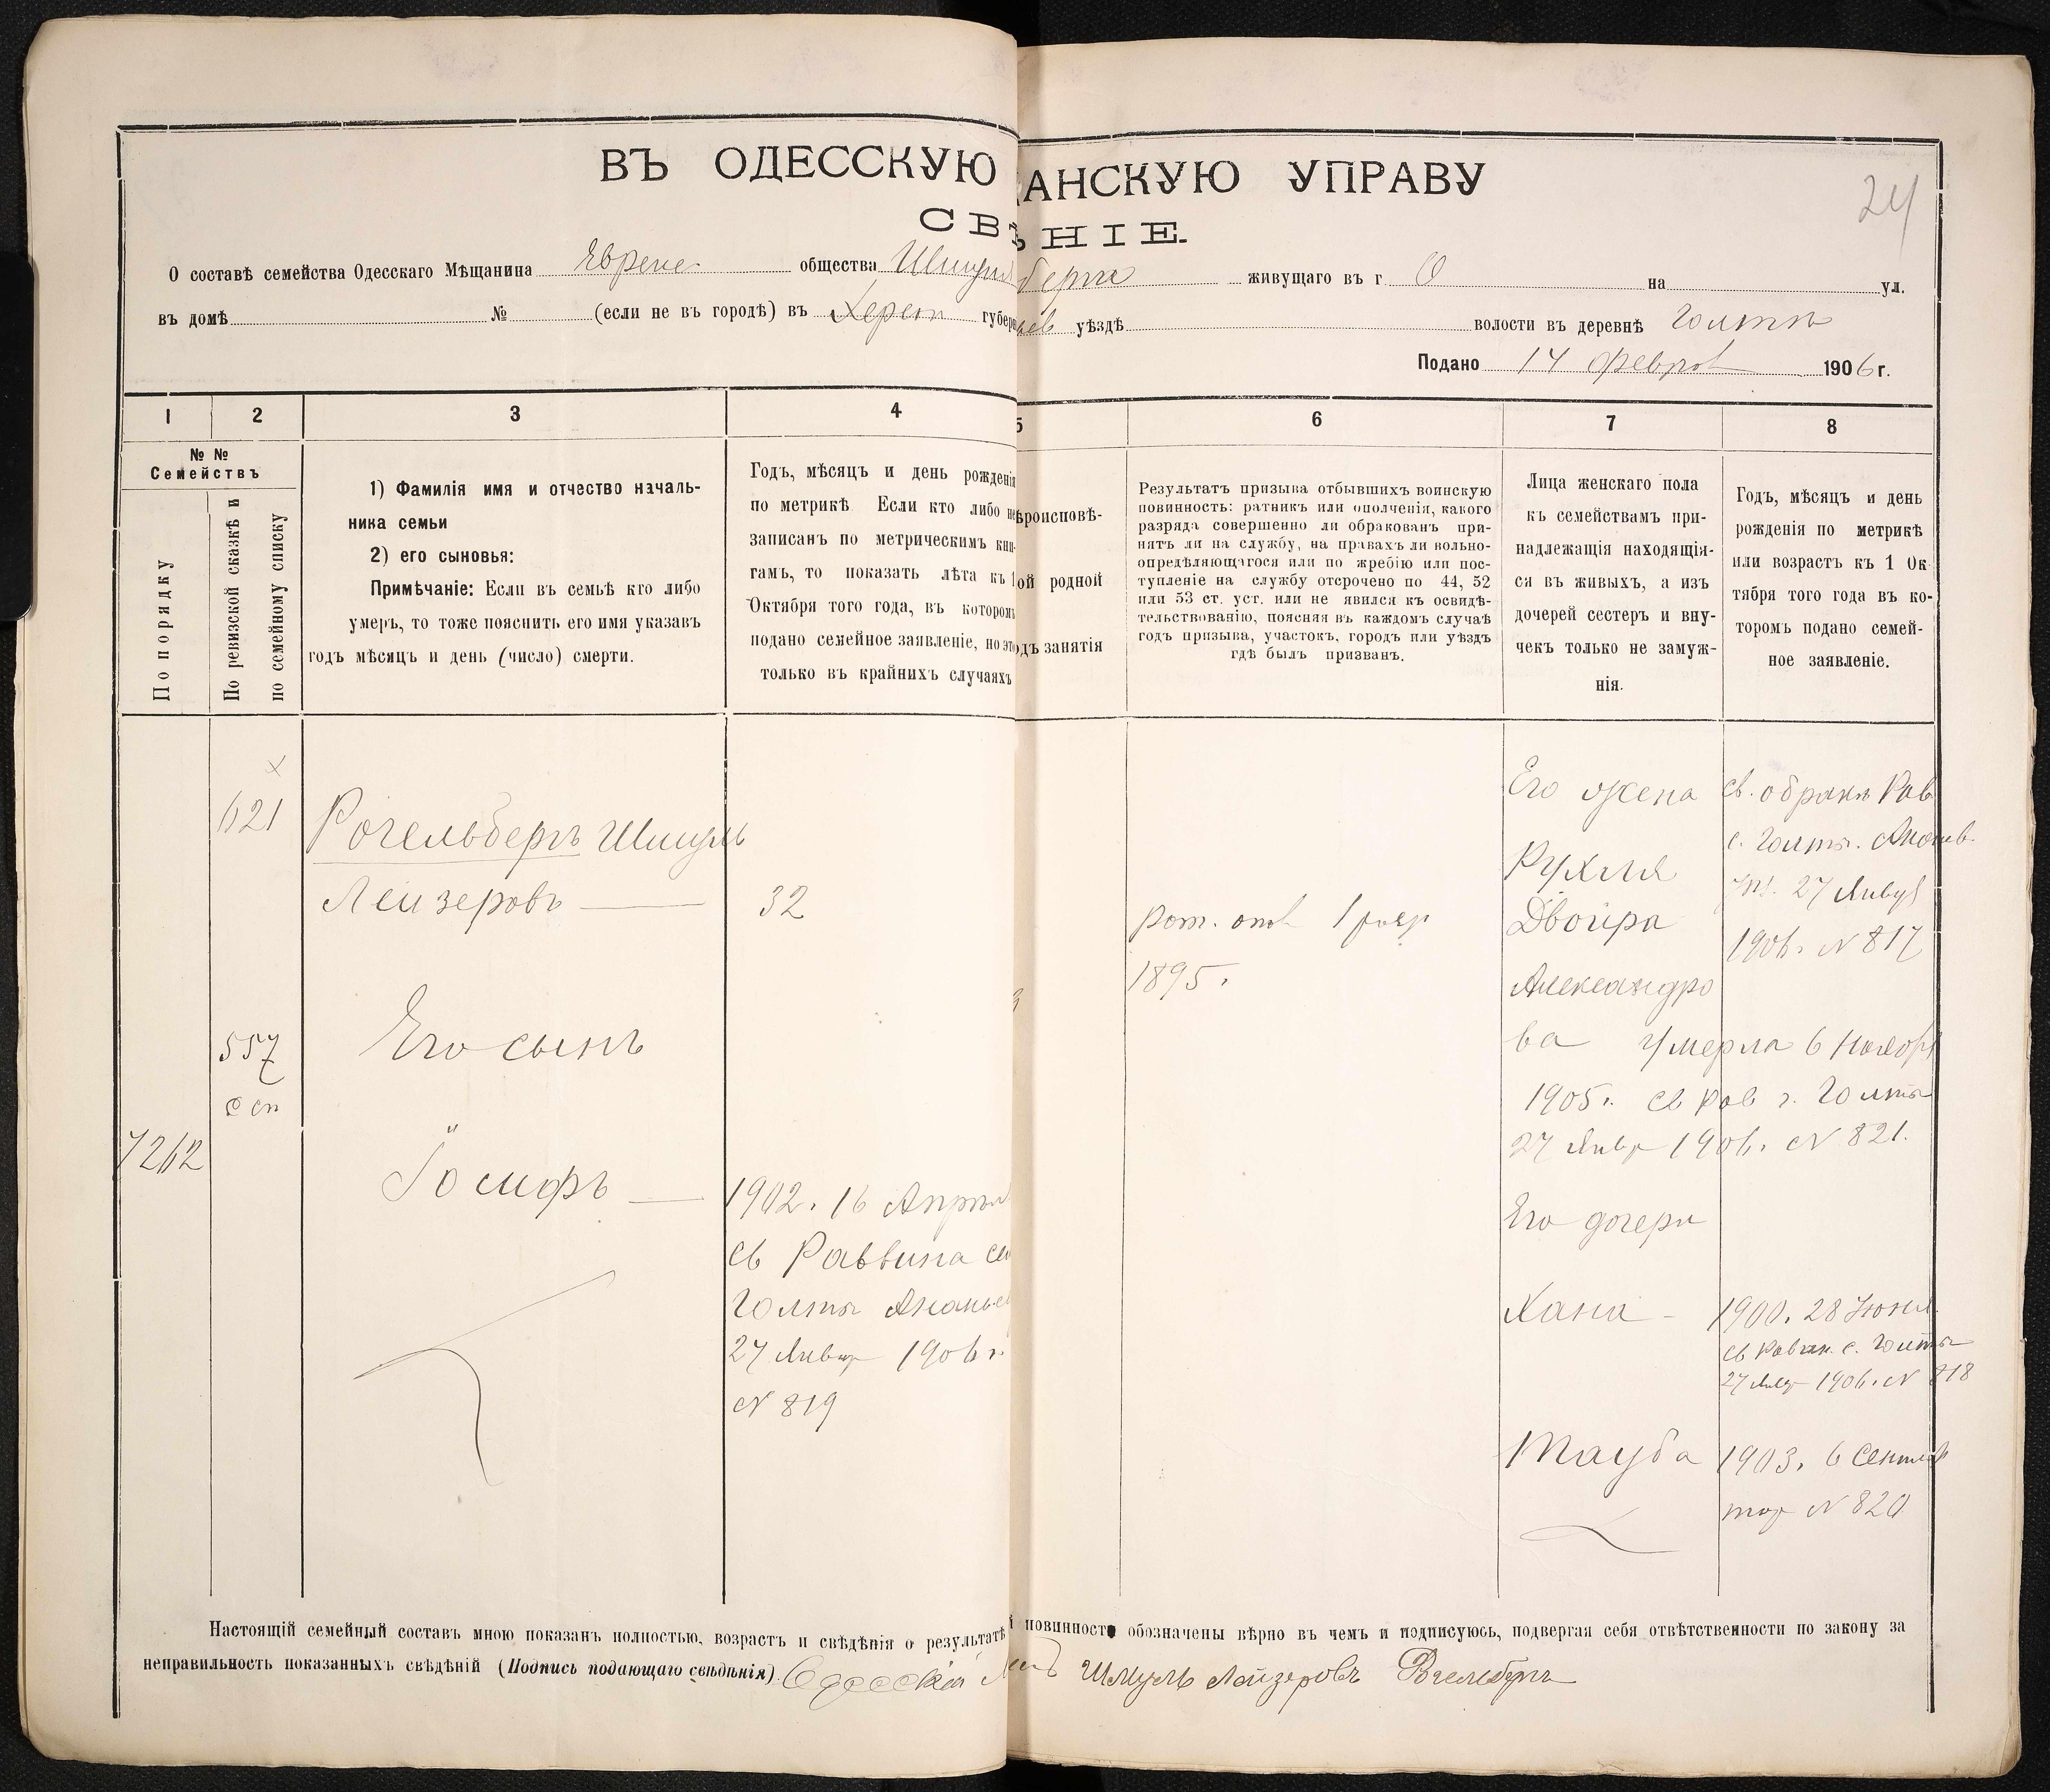 ВЪ ОДЕССКУЮ АНСКУЮ УПРАВУ
24
СВѢНІЕ.
О составѣ семейства Одесскаго Мѣщанина Еврейс общества Шмуля берга живущаго въ г О на ул.
въ домѣ № (если не въ городѣ) въ Херсон губер уѣздѣ волости въ деревнѣ Голта
Подано 14 Феврал 1906 г.
1 2 3 4 5 6 7 8
№ № Семействъ
По порядку
По ревизской сказкѣ и
по семейному списку
1) Фамилія имя и отчество началь-
ника семьи
2) его сыновья:
Примѣчаніе: Если въ семьѣ кто либо
умеръ, то тоже пояснить его имя указавъ
годъ мѣсяцъ и день (число) смерти.
Годъ, мѣсяцъ и день рожденія
по метрикѣ Если кто либо не
записанъ по метрическимъ кни-
гамъ, то показать лѣта къ 1
Октября того года, въ которомъ
подано семейное заявленіе, но это
только въ крайнихъ случаяхъ
ѣроисповѣ-
ой родной
одъ занятія
Результатъ призыва отбывшихъ воинскую
повинность: ратникъ или ополченія, какого
разряда совершенно ли обракованъ при-
нятъ ли на службу, на правахъ ли вольно-
опредѣляющагося или по жребію или пос-
тупленіе на службу отсрочено по 44, 52
или 53 ст. уст. или не явился къ освидѣ-
тельствованію, поясняя въ каждомъ случаѣ
годъ призыва, участокъ, городъ или уѣздъ
гдѣ былъ призванъ.
Лица женскаго пола
къ семействамъ при-
надлежащія находящія-
ся въ живыхъ, а изъ
дочерей сестеръ и вну-
чекъ только не замуж-
нія.
Годъ, мѣсяцъ и день
рожденія по метрикѣ
или возрастъ къ 1 Ок
тября того года въ ко-
торомъ подано семей-
ное заявленіе.
7262
х
621
557
с сп
Рогельбергъ Шмуль
Лейзеровъ
Его сынъ
Іосифъ
32
1902. 16 Апрѣл
св Раввина се
Голты Ананьев
27 Январ 1906 г.
N 819
рат. опол 1 разр
1895 г.
Его жена
Рухля
Двойра
Александро
ва умерла 6 Ноябр
1905 г. св Рав г. Голты
27 Январ 1906. N 821.
Его дочери
Хана
Тауба
св. о бракѣ Рав
с. Голты. Ананьев.
27 Январ
1906. N 817
1900. 28 Іюня
св Раввин. с. Голты
27 Янвр 1906. N 818
1903. 6 Сентяб
N 820
Настоящій семейный составъ мною показанъ полностью, возрастъ и свѣдѣнія о результатѣ й повинности обозначены вѣрно въ чемъ и подписуюсь, подвергая себя отвѣтственности по закону за
неправильность показанныхъ свѣдѣній (Подпись подающаго свѣдѣнія) Одесскій Шмуль Лейзеровъ Рогельбергъ